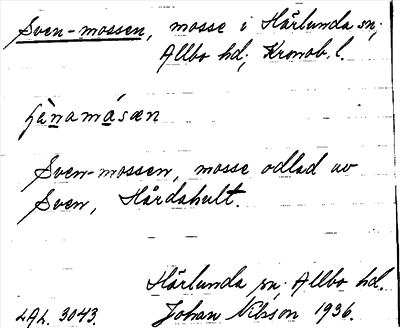 Sven-mossen, mosse i Härlunda sn;
Allbo hd; Kronob. l.
Sven-mossen, mosse odlad av
Sven, Hårdahult.
Härlunda sn. Allbo hd.
LAL. 3043. Johan Nilsson 1936.